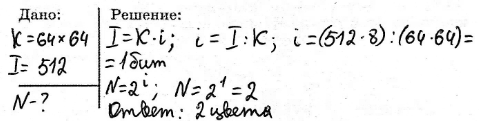 Дано:
К=64×64
I= 512
N-?
Решение:
I=К·i; i=I:К; i=(512·8):(64·64)=
=1бит
N=2^i; N=2^1=2
Ответ: 2 цвета